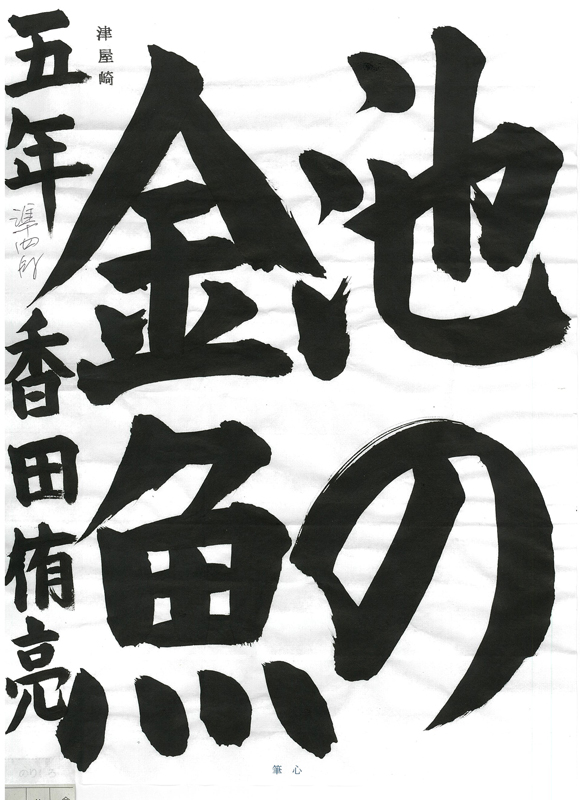 池の
金魚
津屋崎
五年 準四段 香田侑亮
筆心